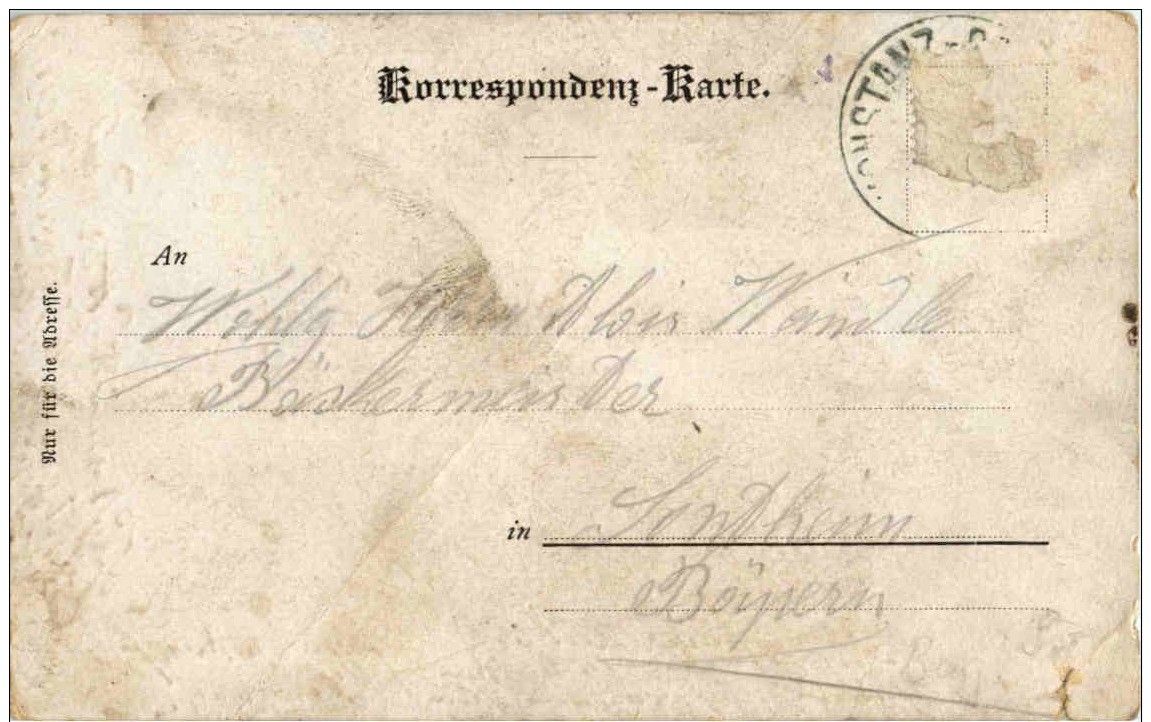 Korrespondenz-Karte.
ONSTANZ
An
Wohlg. Herrn Alois Waindl
Bäckermeister
in Sontheim
Bayern
Nur für die Adresse.